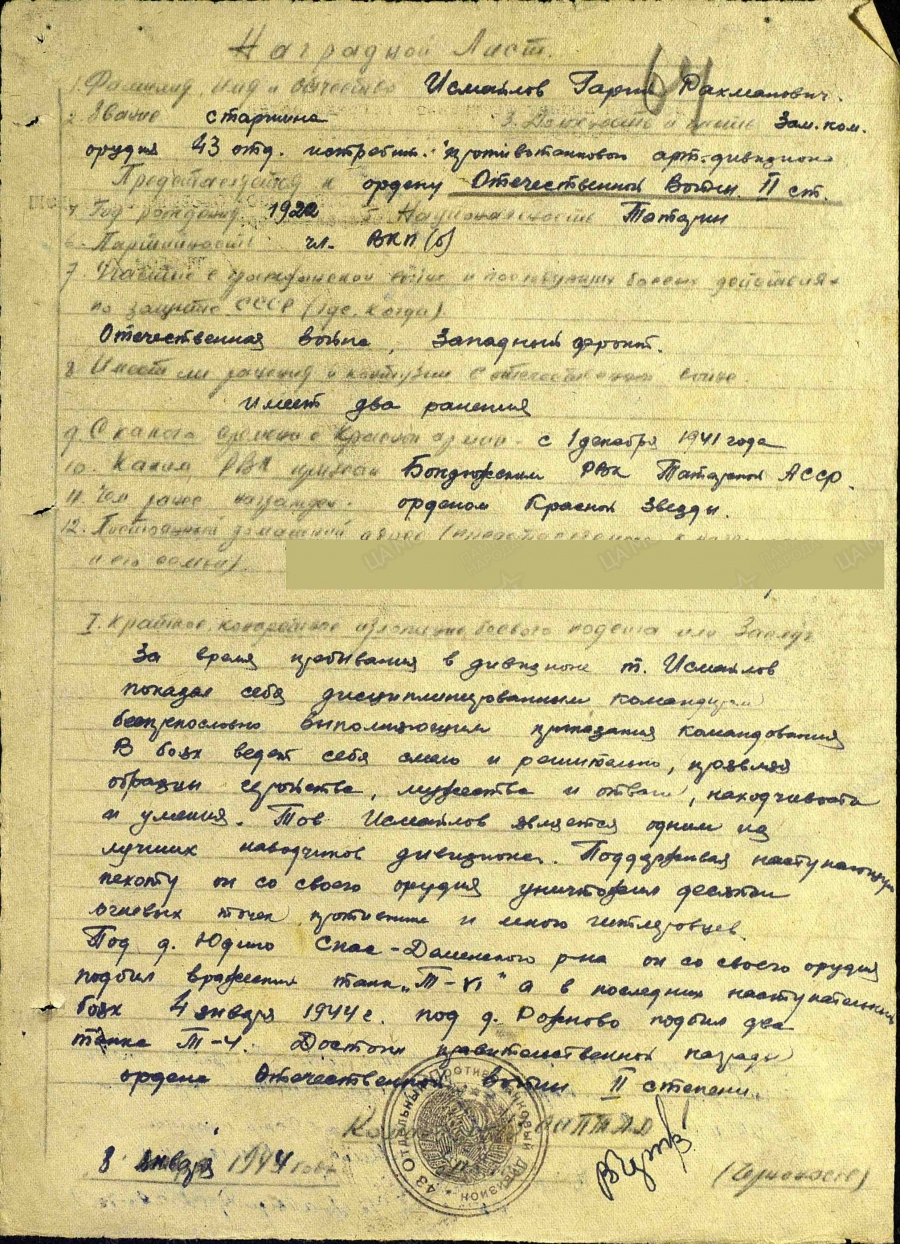 Наградной Лист.
64
1. Фамилия, имя и отчество Исмаилов Гариф Рахманович.
2. Звание старшина 3. Должность и часть Зам. ком.
орудия 43 отд. истребит. противотанкового арт. дивизиона
Представляется к ордену Отечественной Войны II ст.
4. Год рождения 1922 5. Национальность Татарин
6. Партийность чл. ВКП(б)
7. Участие в гражданской войне и последующих боевых действиях
по защите СССР (где, когда).
Отечественная война, Западный фронт.
8. Имеет ли ранения и контузии в отечественной войне.
имеет два ранения
9. С какого времени в Красной армии - с 1 декабря 1941 года
10. Каким РВК призван Бондюжским РВК Татарской АССР.
11. Чем ранее награжден. орденом Красной Звезды.
12. Постоянный домашний адрес (представляемого к
и его семьи).
I. Краткое, конкретное изложение боевого подвига или Заслуг
За время пребывания в дивизионе т. Исмаилов
показал себя дисциплинированным командиром
беспрекословно выполняющим приказания командования
В боях ведет себя смело и решительно, проявляя
образцы геройства, мужества и отваги, находчивости
и умения. Тов Исмаилов является одним из
лучших наводчиков дивизиона. Поддерживая наступающую
пехоту он со своего орудия уничтожил десятки
огневых точек противника и много гитлеровцев.
Под д. Юдино Спас-Деменского р-на он со своего орудия
подбил вражеский танк „Т-VI" а в последних наступательных
боях 4 января 1944 г. под д. Рожново подбил два
танка Т-4. Достоин правительственной награды
ордена Отечественной Войны II степени.
43 Отдельный Противотанковый Дивизион
8 января 1944 года